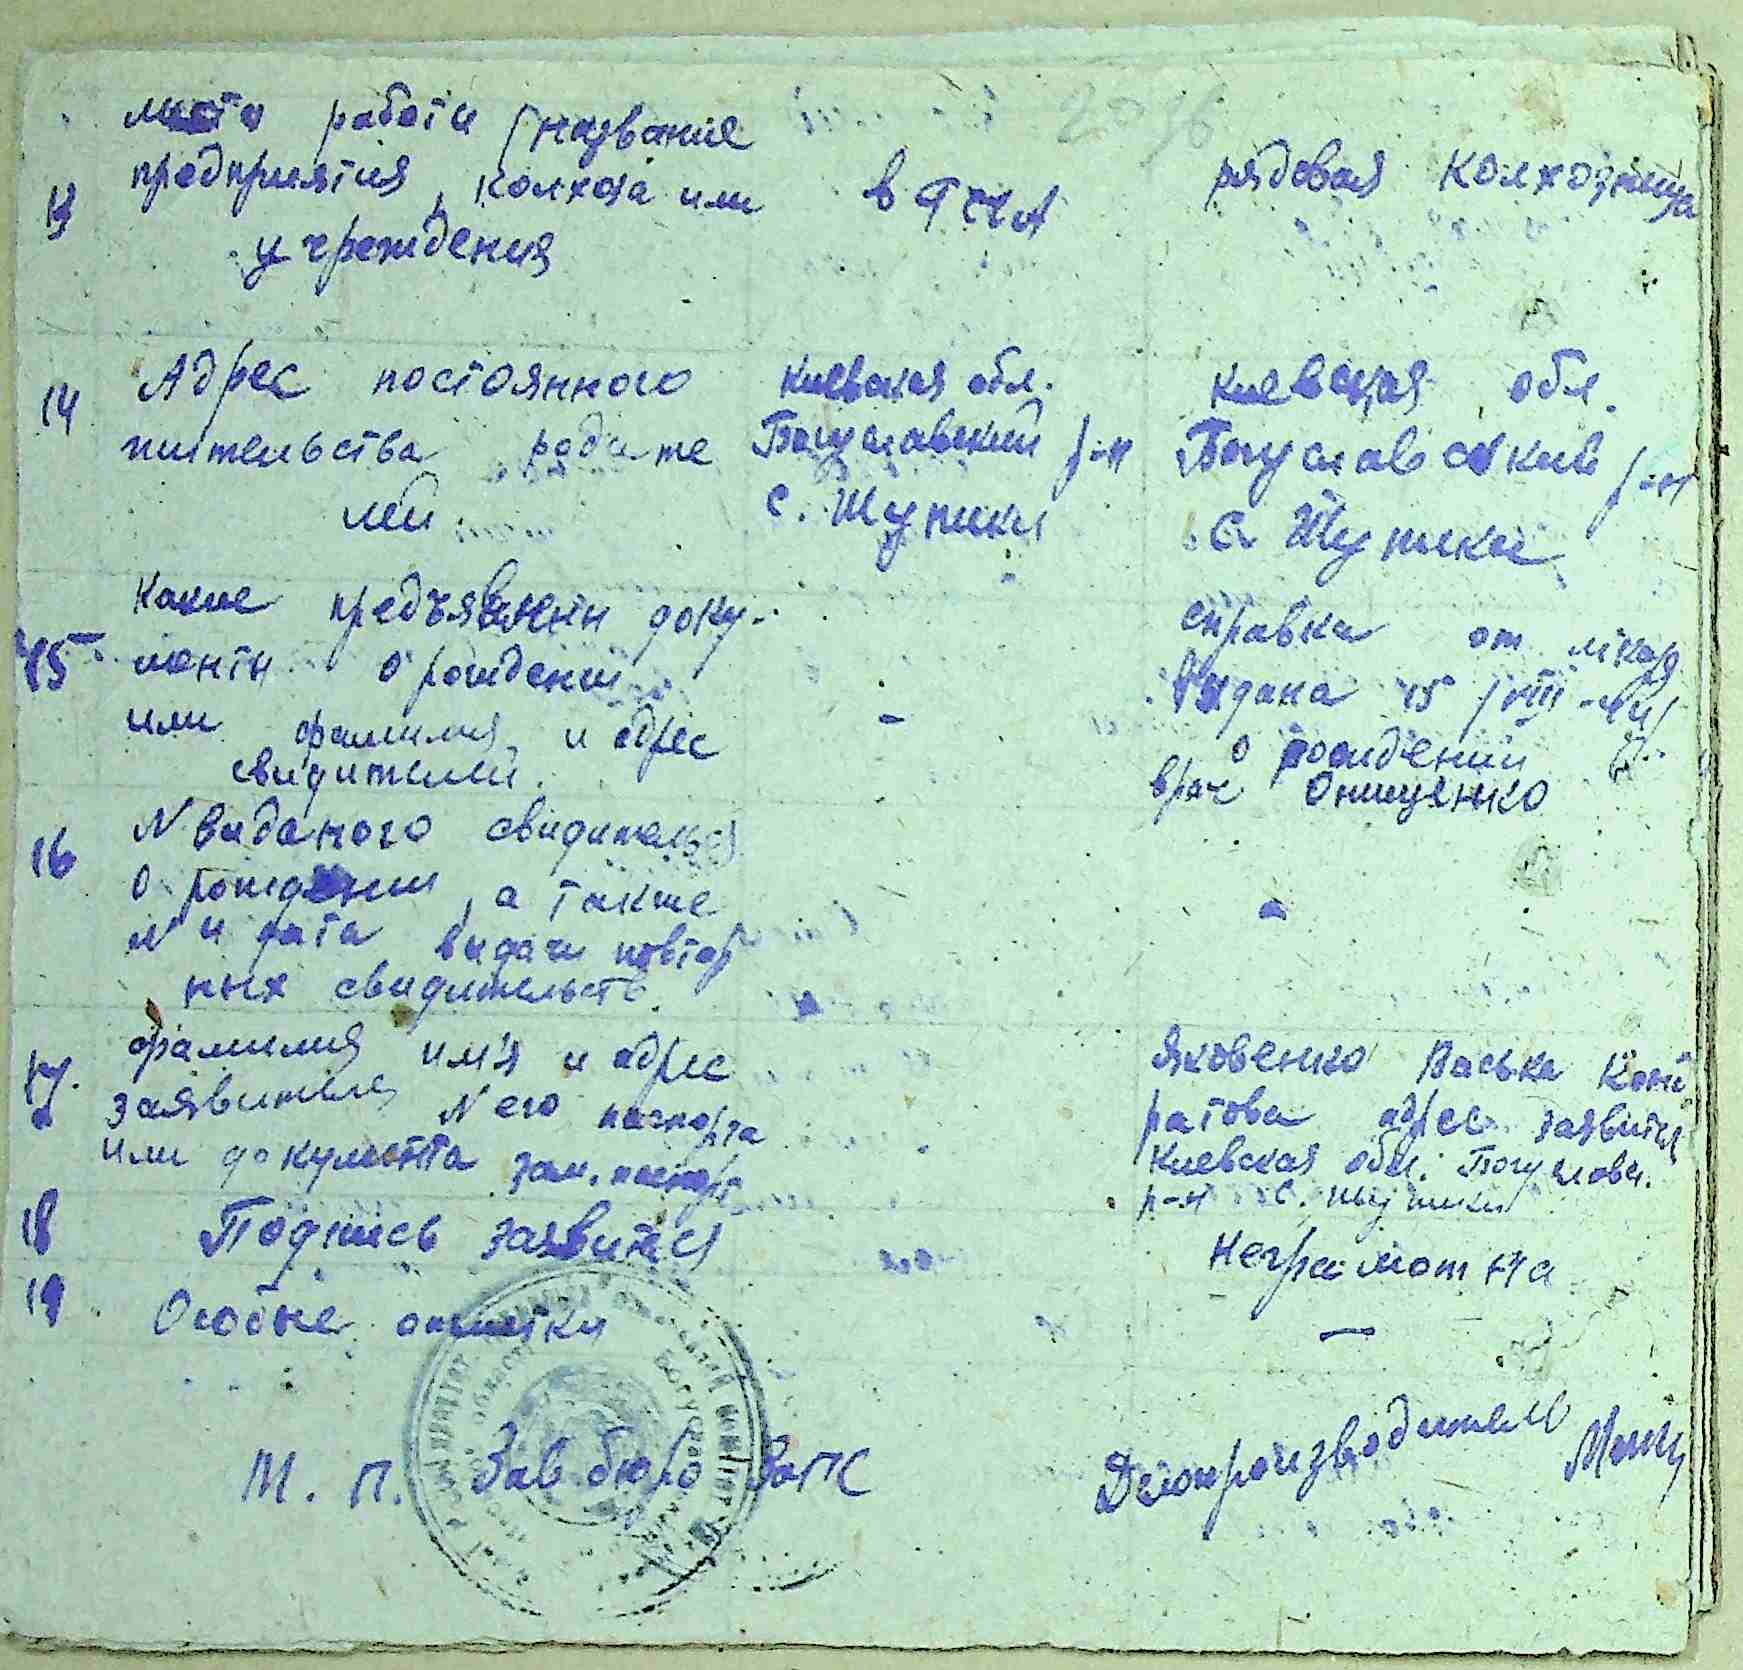 места работи (название
предприятия, колхоза или
учреждения
13
в РККА
рядовая колхозница
14
Адрес постоянного
жительства родите
лей.
Киевская обл.
Богуславский р-н
с. Шупики
Киевская обл.
Богуславский р-н
с. Шупики
15
Какие предъявлени доку-
менти о рождении
или фамилия и адрес
свидителей.
-
справка от лікаря
видана 15/VIII
о рождении
врач Онищенко
16
N виданого свидительс
о рождении, а также
N и дата видачи повтор
ных свидительств.
-
17.
фамилия им'я и адрес
заявителя N его паспорта
или документа зам. паспорт
Яковенко Васька Конд
ратова адрес заявителя
Киевская обл. Богуславск.
р-н с. Шупики
18
Подпись заявителя
Неграмотна
19
Особие отметки
—
М. П. Зав бюро Загс
Делопроизводитель